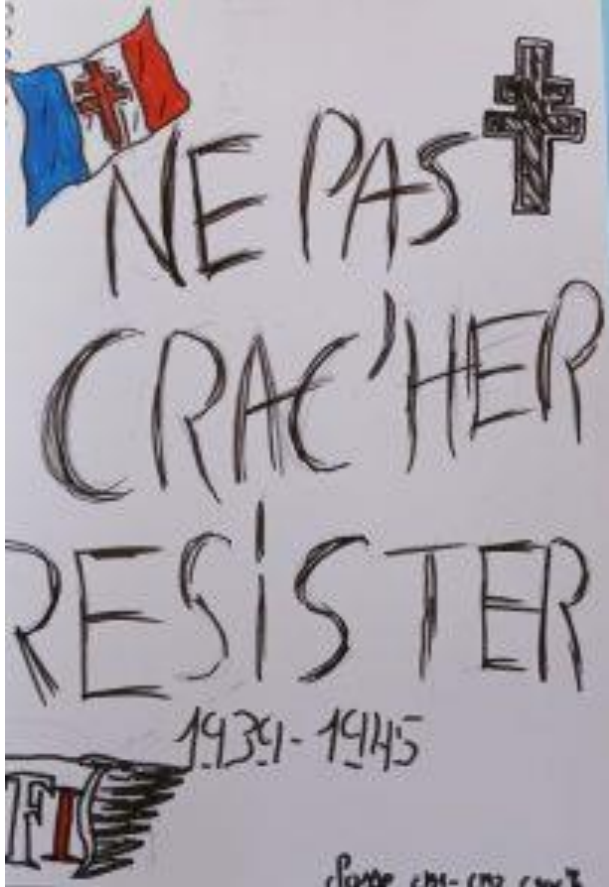 NE PAS
CRAC'HER
RESiSTER
1939-1945
FI